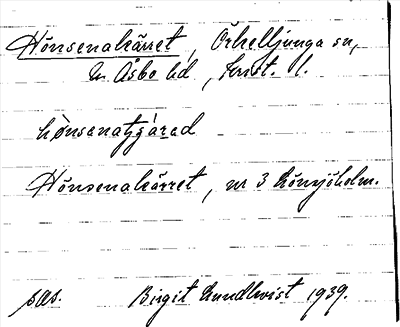 Hönsenakärret, Örkelljunga sn,
N Åsbo hd, Krist. l.
Hönsenakärret, nr 3 Hönsjöholm.
sås. Birgit Lundkvist 1939.